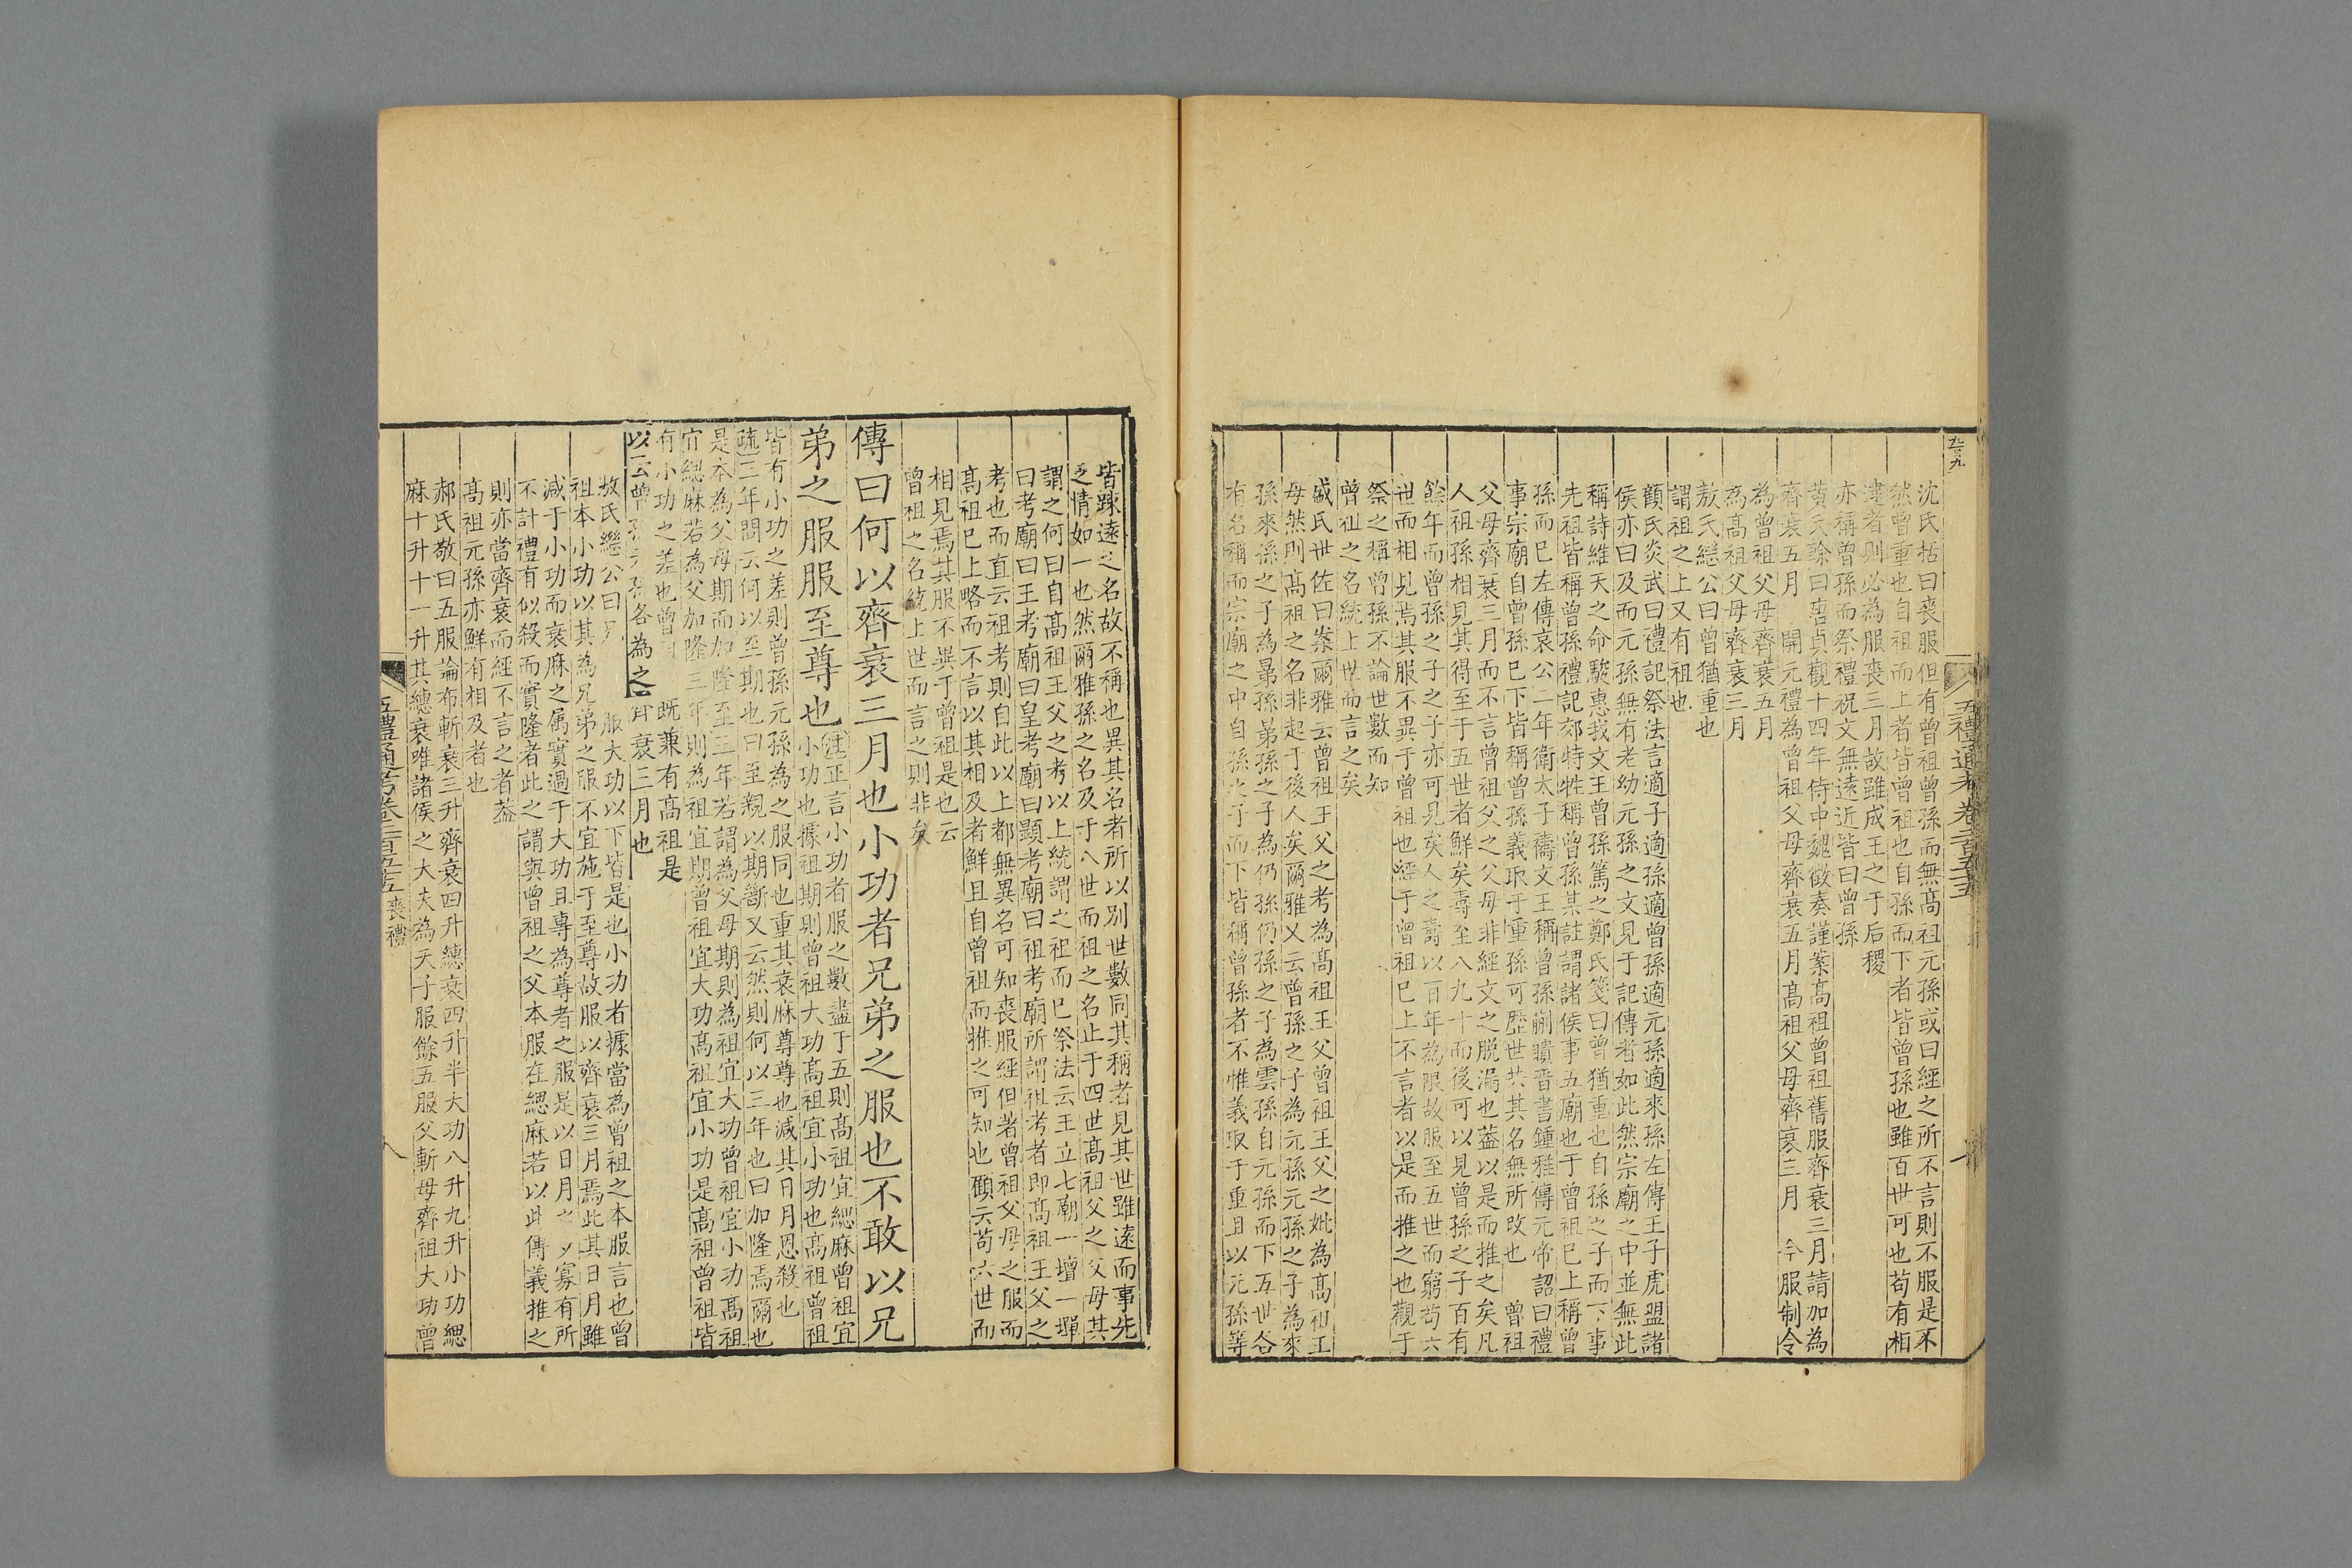 沈氏括曰喪服但有曾祖曾孫而無高祖元孫或曰經之所不言則不服是不
然曾重也自祖而上者皆曾祖也自孫而下者皆曾孫也雖百世可也苟有相
逮者則必為服喪三月故雖成王之于后稷
亦稱曾孫而祭禮祝文無遠近皆曰曾孫
黃氏榦曰唐貞觀十四年侍中魏徵奏謹案高祖曾祖舊服齊衰三月請加為
齊衰五月 開元禮為曾祖父母齊衰五月高祖父母齊衰三月 今服制令
為曾祖父母齊衰五月
為高祖父母齊衰三月
敖氏繼公曰曾猶重也
謂祖之上又有祖也
顧氏炎武曰禮記祭法言適子適孫適曾孫適元孫適來孫左傳王子虎盟諸
侯亦曰及而元孫無有老幼元孫之文見于記傳者如此然宗廟之中並無此
稱詩維天之命駿惠我文王曾孫篤之鄭氏箋曰曾猶重也自孫之子而下事
先祖皆稱曾孫禮記郊特牲稱曾孫某註謂諸侯事五廟也于曾祖已上稱曾
孫而已左傳哀公二年衛太子禱文王稱曾孫蒯聵晉書鍾雅傳元帝詔曰禮
事宗廟自曾孫已下皆稱曾孫義取于重孫可歷世共其名無所改也 曾祖
父母齊衰三月而不言曾祖父之父母非經文之脫漏也蓋以是而推之矣凡
人祖孫相見其得至于五世者鮮矣壽至八九十而後可以見曾孫之子百有
餘年而曾孫之子之子亦可見矣人之壽以百年為限故服至五世而窮苟六
世而相見焉其服不異于曾祖也經于曾祖已上不言者以是而推之也觀于
祭之稱曾孫不論世數而知
曾祖之名統上世而言之矣
盛氏世佐曰案爾雅云曾祖王父之考為高祖王父曾祖王父之妣為高祖王
母然則高祖之名非起于後人矣爾雅又云曾孫之子為元孫元孫之子為來
孫來孫之子為晜孫晜孫之子為仍孫仍孫之子為雲孫自元孫而下五世各
有名稱而宗廟之中自孫之子而下皆稱曾孫者不惟義取于重且以元孫等
五禮通考卷二百五十五
皆踈遠之名故不稱也異其名者所以別世數同其稱者見其世雖遠而事先
之情如一也然爾雅孫之名及于八世而祖之名止于四世高祖父之父母其
謂之何曰自高祖王父之考以上統謂之祖而已祭法云王立七廟一壇一墠
曰考廟曰王考廟曰皇考廟曰顯考廟曰祖考廟所謂祖考者即高祖王父之
考也而直云祖考則自此以上都無異名可知喪服經但著曾祖父母之服而
高祖已上略而不言以其相及者鮮且自曾祖而推之可知也顧云苟六世而
相見焉其服不異于曾祖是也云
曾祖之名統上世而言之則非矣
傳曰何以齊衰三月也小功者兄弟之服也不敢以兄
弟之服服至尊也注正言小功者服之數盡于五則高祖宜緦麻曾祖宜
小功也據祖期則曾祖大功高祖宜小功也高祖曾祖
皆有小功之差則曾孫元孫為之服同也重其衰麻尊尊也減其日月恩殺也
疏三年問云何以至期也曰至親以期斷又云然則何以三年也曰加隆焉爾也
是本為父母期而加隆至三年若謂為父母期則為祖宜大功曾祖宜小功高祖
宜緦麻若為父加隆三年則為祖宜期曾祖宜大功高祖宜小功是高祖曾祖皆
有小功之差也曾 既兼有高祖是
以云曾 各為之 衰三月也
敖氏繼公曰 服大功以下皆是也小功者據當為曾祖之本服言也曾
祖本小功以其為兄弟之服不宜施于至尊故服以齊衰三月焉此其日月雖
減于小功而衰麻之属實過于大功且專為尊者之服是以日月之 寡有所
不計禮有似殺而實隆者此之謂與曾祖之父本服在緦麻若以此傳義推之
則亦當齊衰而經不言之者蓋
高祖元孫亦鮮有相及者也
郝氏敬曰五服論布斬衰三升齊衰四升繐衰四升半大功八升九升小功緦
麻十升十一升其繐衰唯諸侯之大夫為天子服餘五服父斬母齊祖大功曾
五禮通考卷二百五十五 喪禮
八